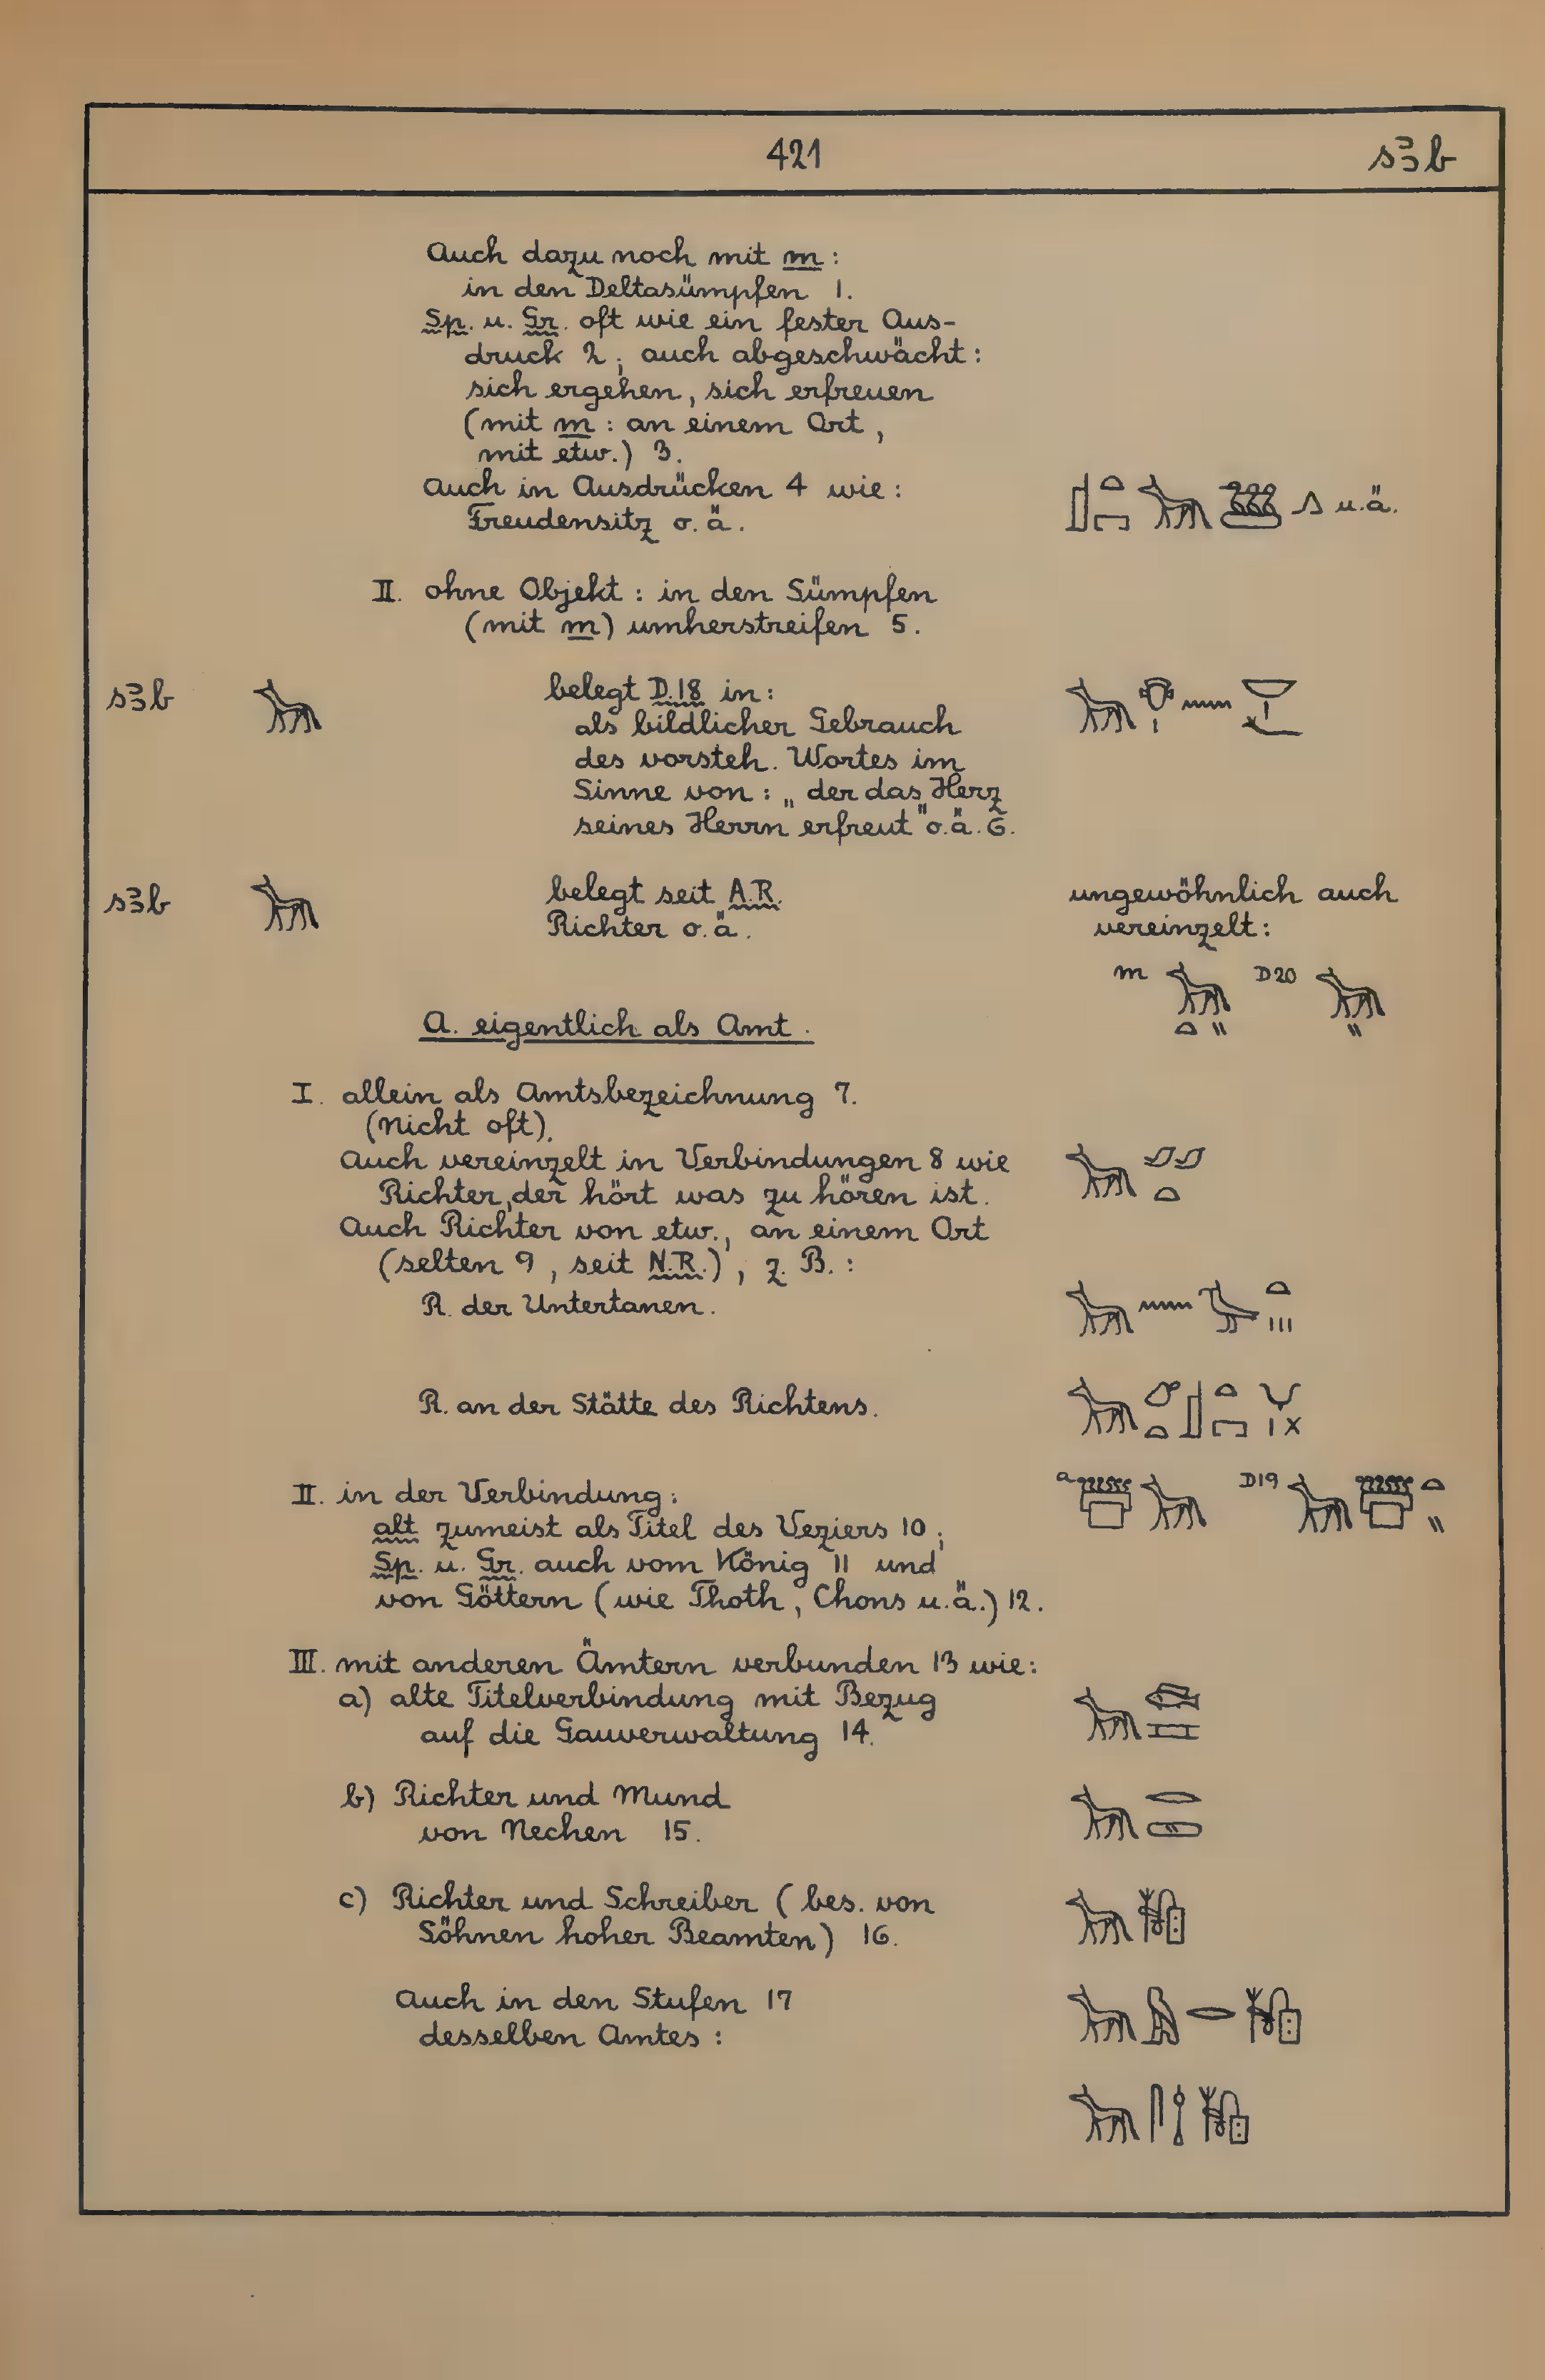 421 sꜣb
Auch dazu noch mit m :
in den Deltasümpfen 1.
Sp. u. Gr. oft wie ein fester Aus-
druck 2 ; auch abgeschwächt :
sich ergehen , sich erfreuen
(mit m : an einem Ort ,
mit etw.) 3.
Auch in Ausdrücken 4 wie : u.ä.
Freudensitz o.ä.
II. ohne Objekt : in den Sümpfen
(mit m) umherstreifen 5.
sꜣb belegt D.18 in :
als bildlicher Gebrauch
des vorsteh. Wortes im
Sinne von : „ der das Herz
seines Herrn erfreut" o.ä. 6.
sꜣb belegt seit A.R. ungewöhnlich auch
Richter o.ä. vereinzelt :
m D20
A. eigentlich als Amt .
I. allein als Amtsbezeichnung 7.
(nicht oft).
Auch vereinzelt in Verbindungen 8 wie
Richter, der hört was zu hören ist.
Auch Richter von etw., an einem Ort
(selten 9 , seit N.R.) , z. B. :
R. der Untertanen.
R. an der Stätte des Richtens.
II. in der Verbindung : a D19
alt zumeist als Titel des Veziers 10 ;
Sp. u. Gr. auch vom König 11 und
von Göttern (wie Thoth , Chons u.ä.) 12.
III. mit anderen Ämtern verbunden 13 wie :
a) alte Titelverbindung mit Bezug
auf die Gauverwaltung 14.
b) Richter und Mund
von Nechen 15.
c) Richter und Schreiber ( bes. von
Söhnen hoher Beamten) 16.
Auch in den Stufen 17
desselben Amtes :